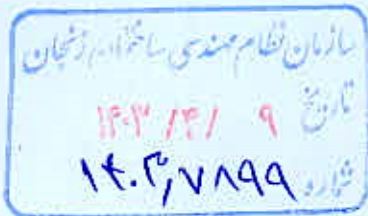 سازمان نظام مهندسی ساختمان زنجان
تاریخ ۱۴۰۳/۴/۹
شماره ۱۴۰۳,۷۸۹۹